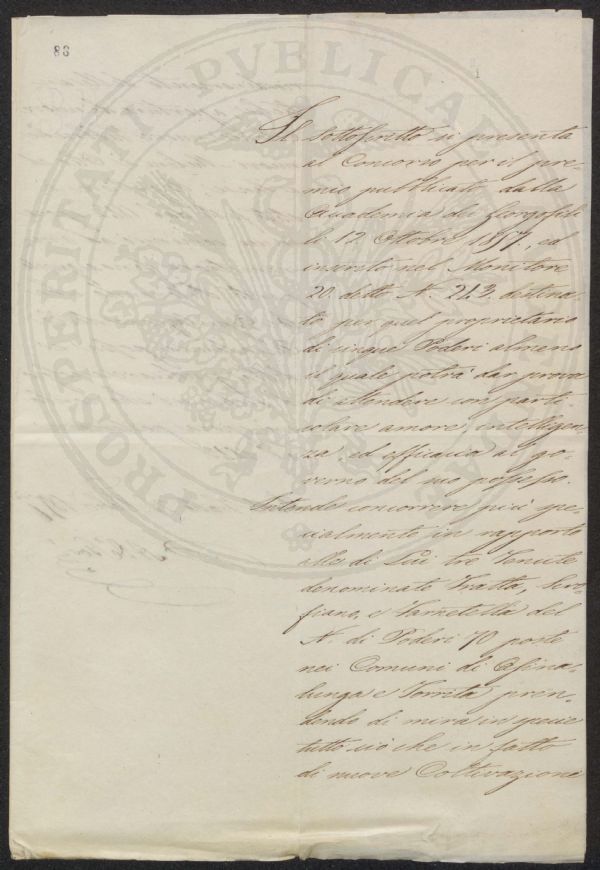 83
1
PROSPERITATI PVBLICAE
Il Sottoscritto si presenta
al Concorso per il pre-
mio pubblicato dalla
Accademia dei Georgofili
li 12 Ottobre 1857, ed
inserito nel Monitore
20. detto N. 243 destina-
to per quel proprietario
di cinque Poderi almeno
il quale potrà dar prova
di attendere con parti
colare amore, intelligen-
za, ed efficacia al go-
verno del suo possesso.
Intende concorrere più spe-
cialmente in rapporto
alle di Lui tre Tenute
denominate Fratta, Sero-
fiano, e del
N. di Poderi 70 poste
nei Comuni di Asina-
lunga e Torrita pren-
dendo di mira in specie
tutto ciò che in fatto
di nuove Coltivazione